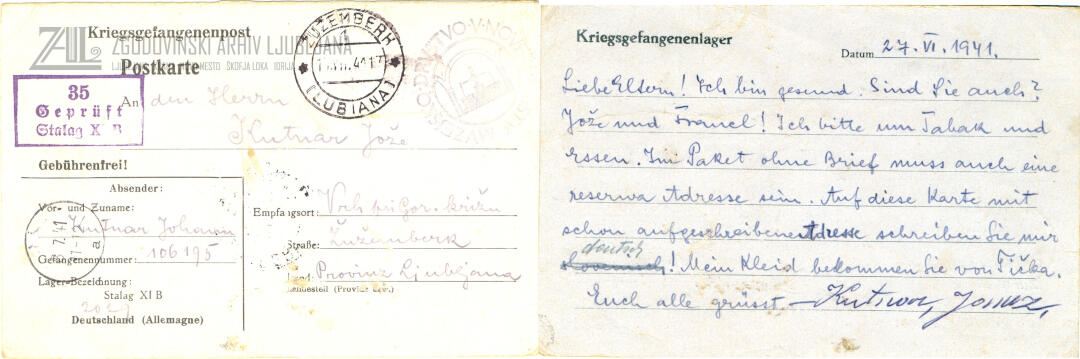 Kriegsgefangenenpost
ZAL ZGODOVINSKI ARHIV LJUBLJANA
Postkarte
ŠKOFJA LOKA IDRIJA
ŽUŽEMBERK
(LUBIANA)
35
Geprüft
Stalag XI B
An den Herrn
Kutnar Jože
Gebührenfrei!
Absender:
Vor- und Zuname:
Kutnar Johann
Gefangenennummer: 106195
Lager-Bezeichnung:
Stalag XI B
Deutschland (Allemagne)
Empfangsort: Vrh pri Gor. križu
Straße: Žužemberk
Provinz Ljubljana
Landesteil (Provinz usw.)
Kriegsgefangenenlager
Datum 27. VI. 1941.
Liebe Eltern! Ich bin gesund. Sind Sie auch?
Jože und Francl! Ich bitte um Tabak und
essen. Im Paket ohne Brief muss auch eine
reserwa Adresse sein. Auf diese Karte mit
schon aufgeschriebene Adresse schreiben Sie mir
deutsch
slovenisch! Mein Kleid bekommen Sie von Tička.
Euch alle grüsst – Kutnar, Janez.